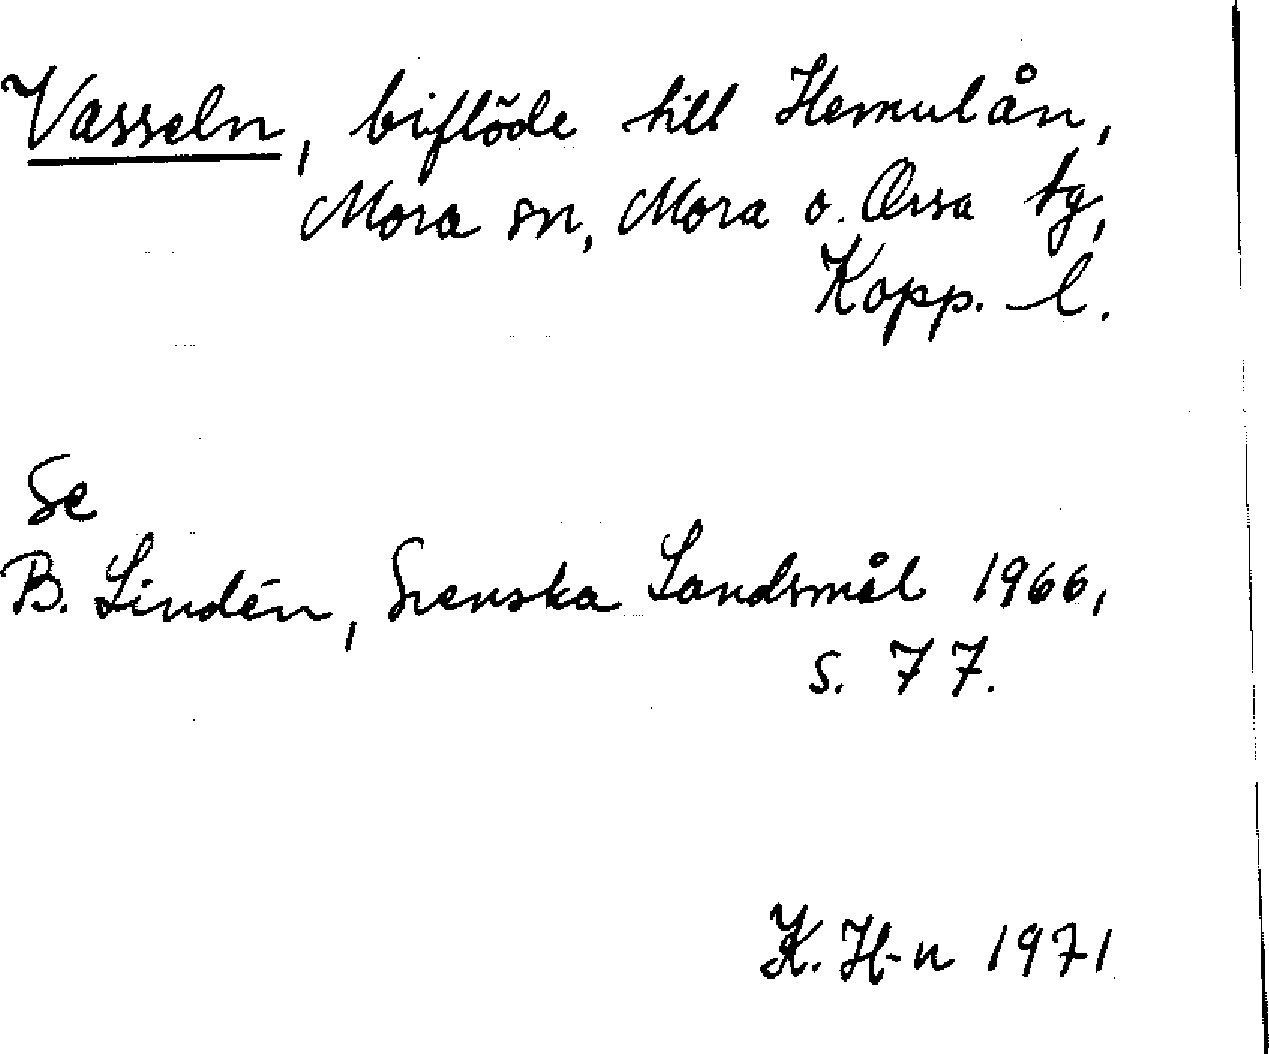 Vasseln, biflöde till Hemulån,
Mora sn, Mora o. Orsa tg,
Kopp. l.
Se
B. Lindén, Svenska Landsmål 1966,
s. 77.
K. H-n 1971